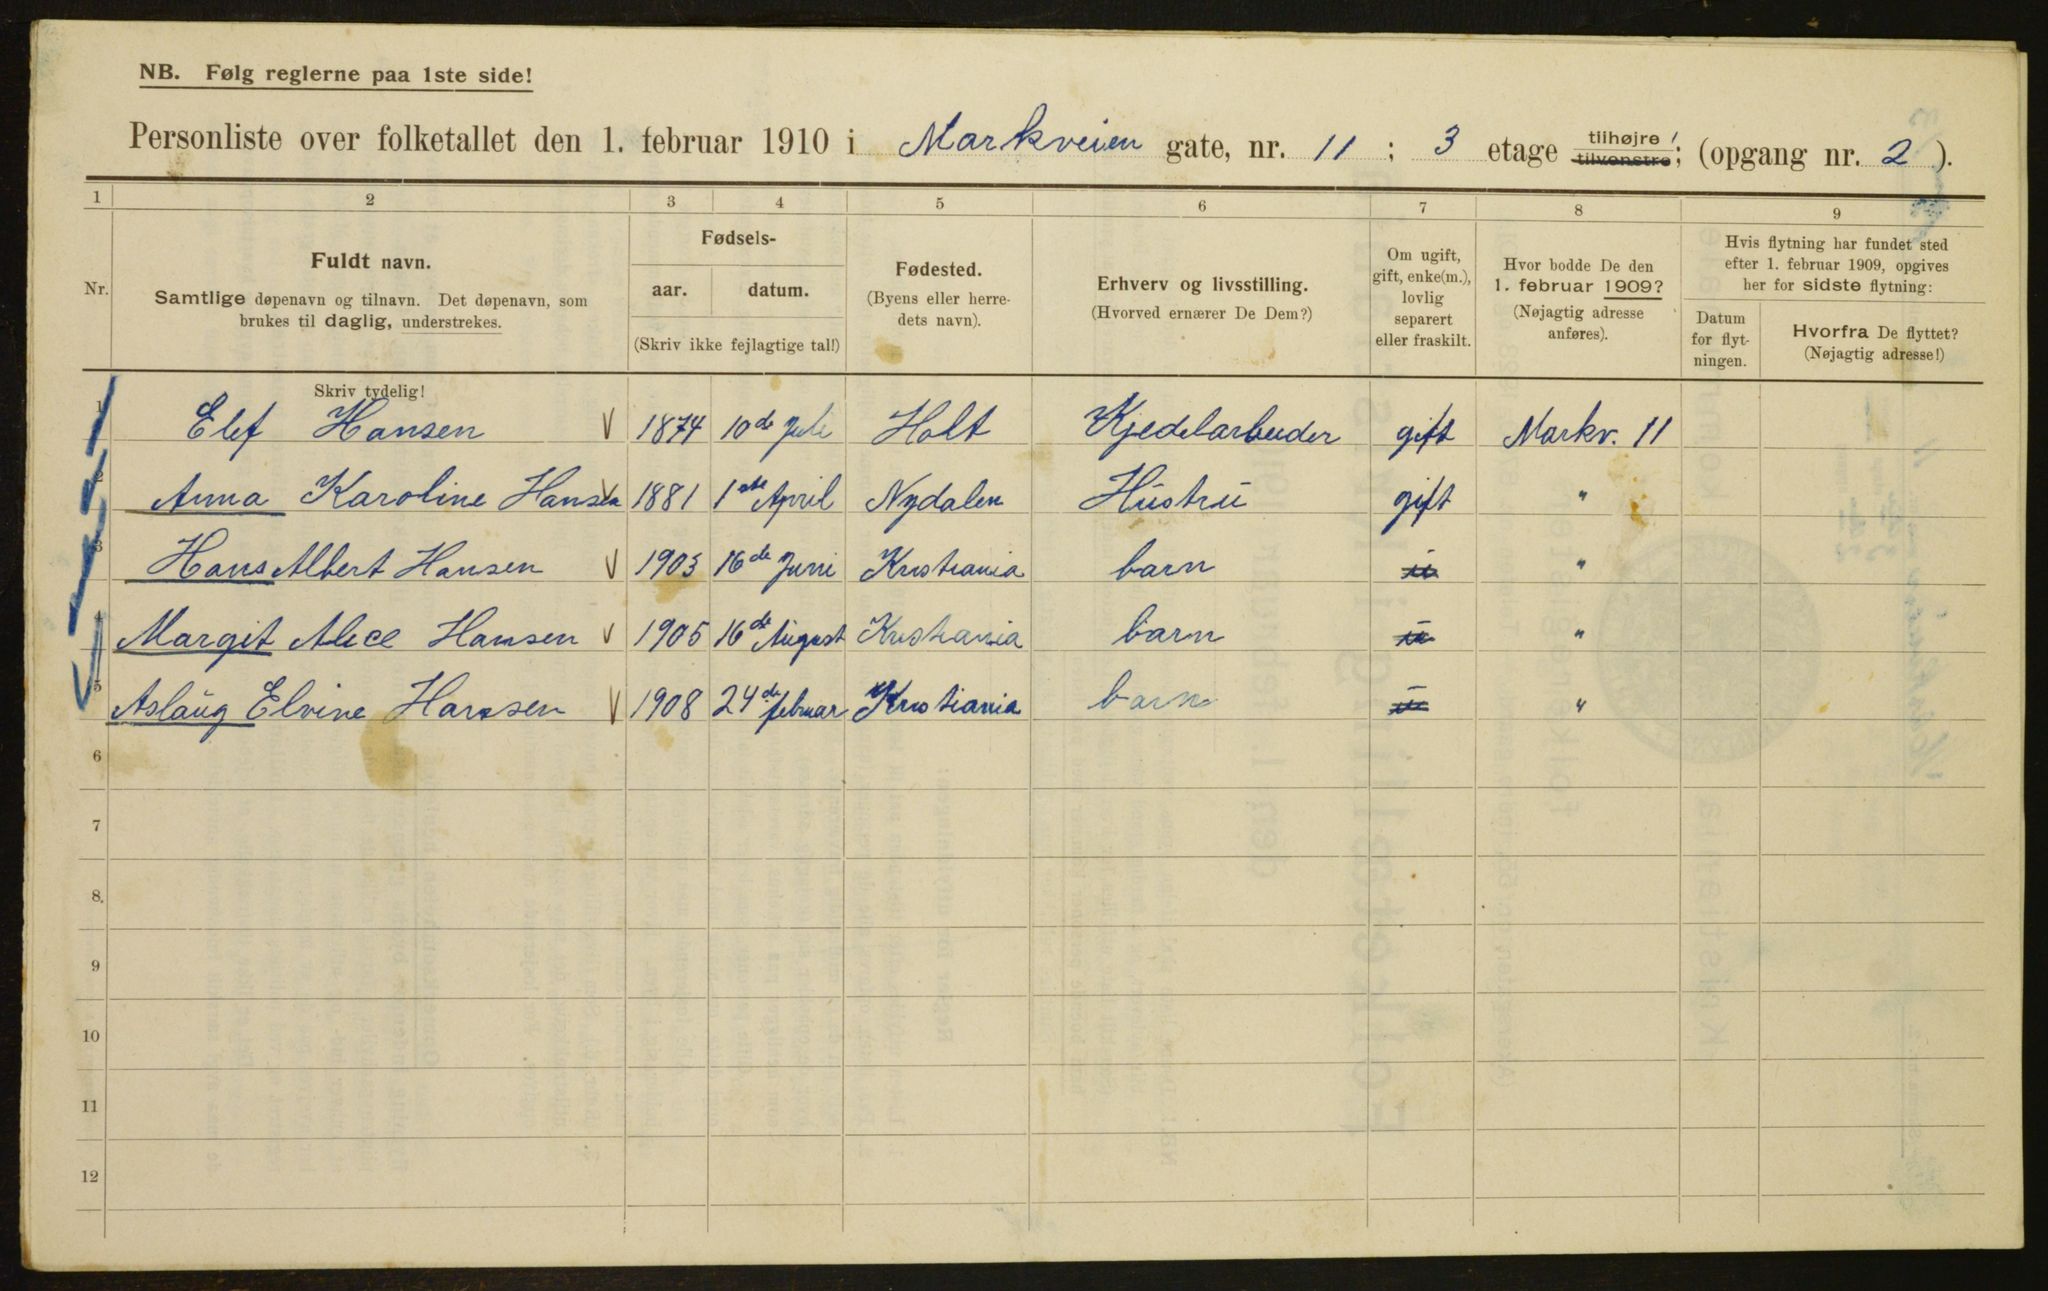 NB. Følg reglerne paa 1ste side!
Personliste over folketallet den 1. februar 1910 i Markveien gate, nr. 11 ; 3 etage tilhøjre/ tilvenstre; (opgang nr. 2 ).
1 2 3 4 5 6 7 8 9
Nr.
Fuldt navn.
Samtlige døpenavn og tilnavn. Det døpenavn, som
brukes til daglig, understrekes.
Skriv tydelig!
Fødsels-
aar. datum.
(Skriv ikke fejlagtige tal!)
Fødested.
(Byens eller herre-
dets navn).
Erhverv og livsstilling.
(Hvorved ernærer De Dem?)
Om ugift,
gift, enke(m.),
lovlig
separert
eller fraskilt.
Hvor bodde De den
1. februar 1909?
(Nøjagtig adresse
anføres).
Hvis flytning har fundet sted
efter 1. februar 1909, opgives
her for sidste flytning:
Datum
for flyt-
ningen.
Hvorfra De flyttet?
(Nøjagtig adresse!)
1 Elef Hansen 1874 10de Juli Holt Kjedelarbeider gift Markv. 11
2 Anna Karoline Hansen 1881 1ste April Nydalen Hustru gift "
3 Hans Albert Hansen 1903 16de Juni Kristiania barn u "
4 Margit Alice Hansen 1905 16de August Kristiania barn u "
5 Aslaug Elvine Hansen 1908 24de februar Kristiania barn u "
6
7
8
9
10
11
12